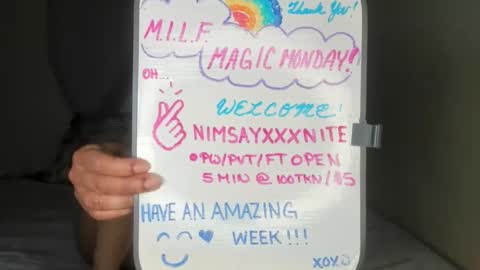 Thank You!
M.I.L.F.
MAGIC MONDAY!
OH...
WELCOME!
NIMSAYXXXNITE
•PW/PVT/FT OPEN
5 MIN @ 100TKN/$5
HAVE AN AMAZING
WEEK!!!
XOXO